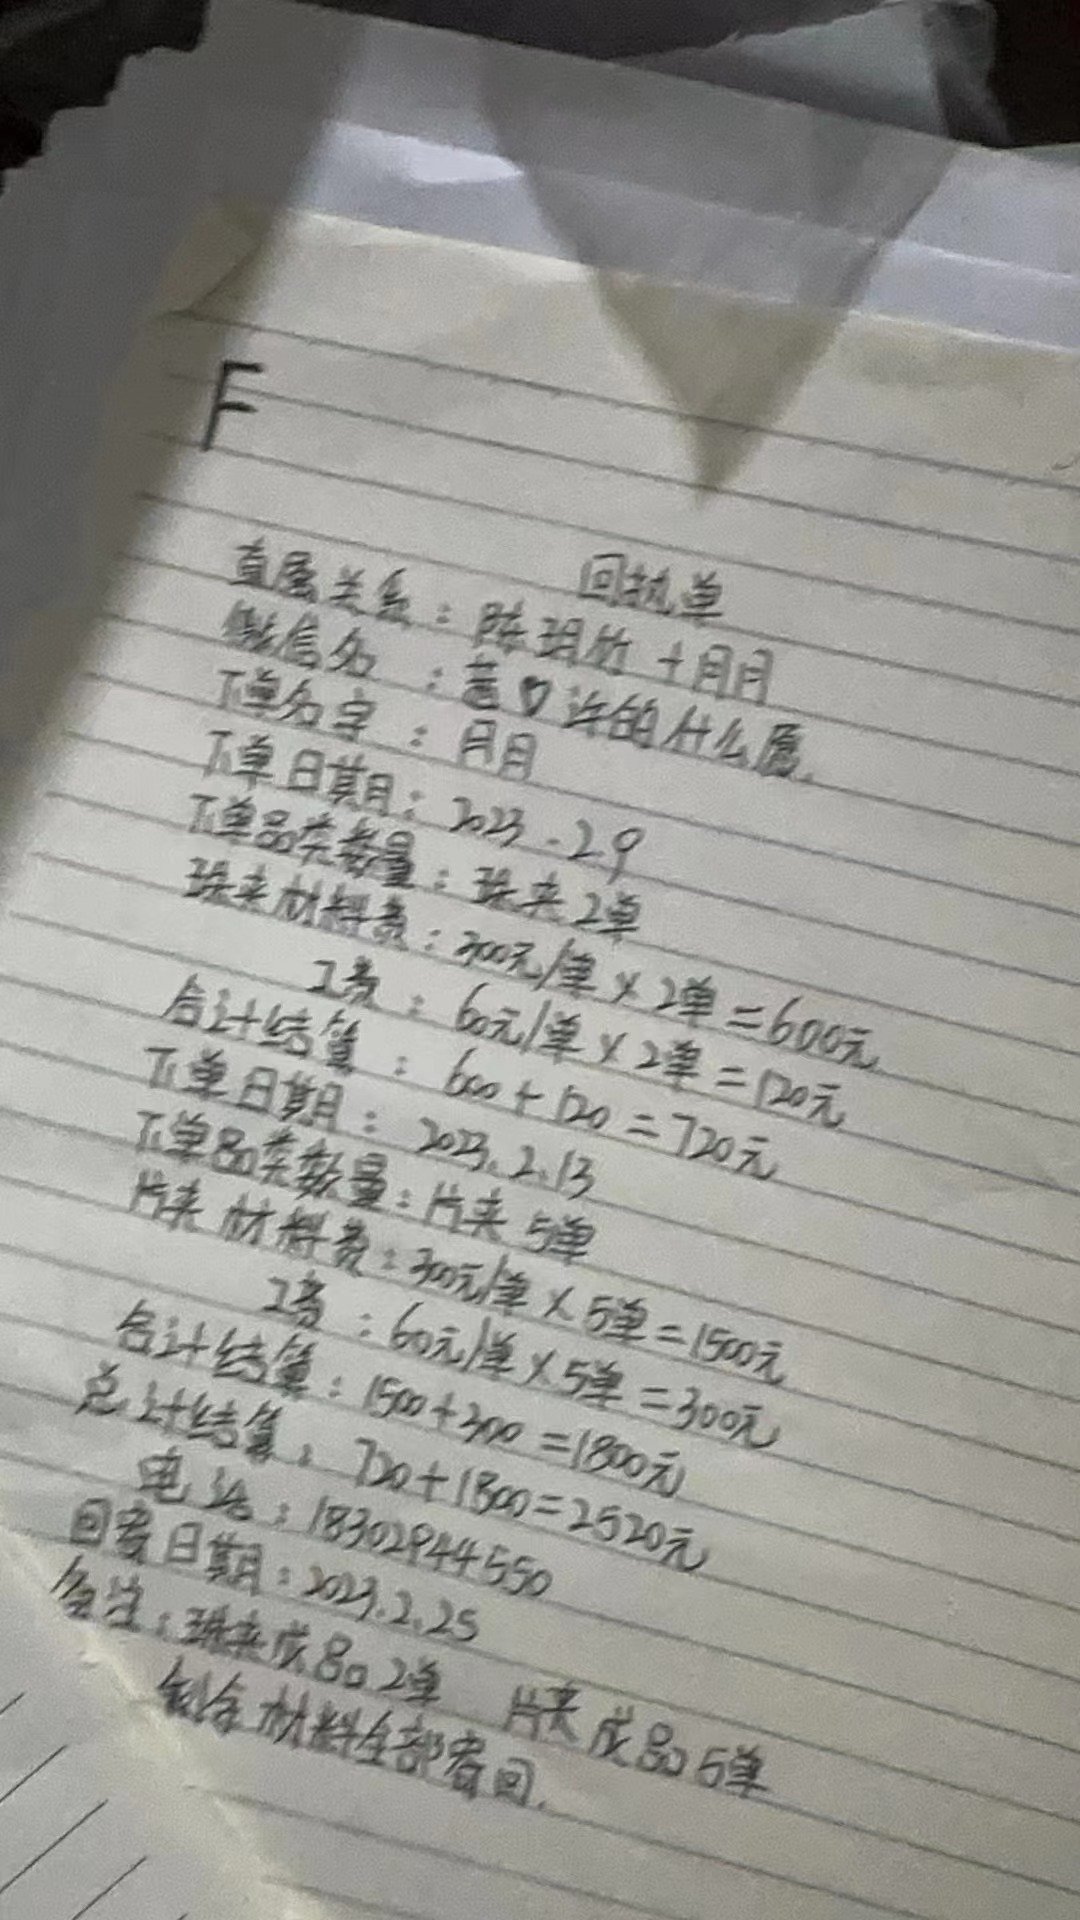 F
回执单
直属关系：陈玥竹+月月
微信名：许的什么愿.
下单名字：月月
下单日期：2023.2.9
下单品类数量：珠夹2单
珠夹材料费：300元/单×2单=600元
工费：60元/单×2单=120元
合计结算：600+120=720元
下单日期：2023.2.13
下单品类数量：片夹5单
片夹材料费：300元/单×5单=1500元
工费：60元/单×5单=300元
合计结算：1500+300=1800元
总计结算：720+1800=2520元
电话：18302944550
回寄日期：2023.2.25
备注：珠夹成品2单 片夹成品5单
剩余材料全部寄回.